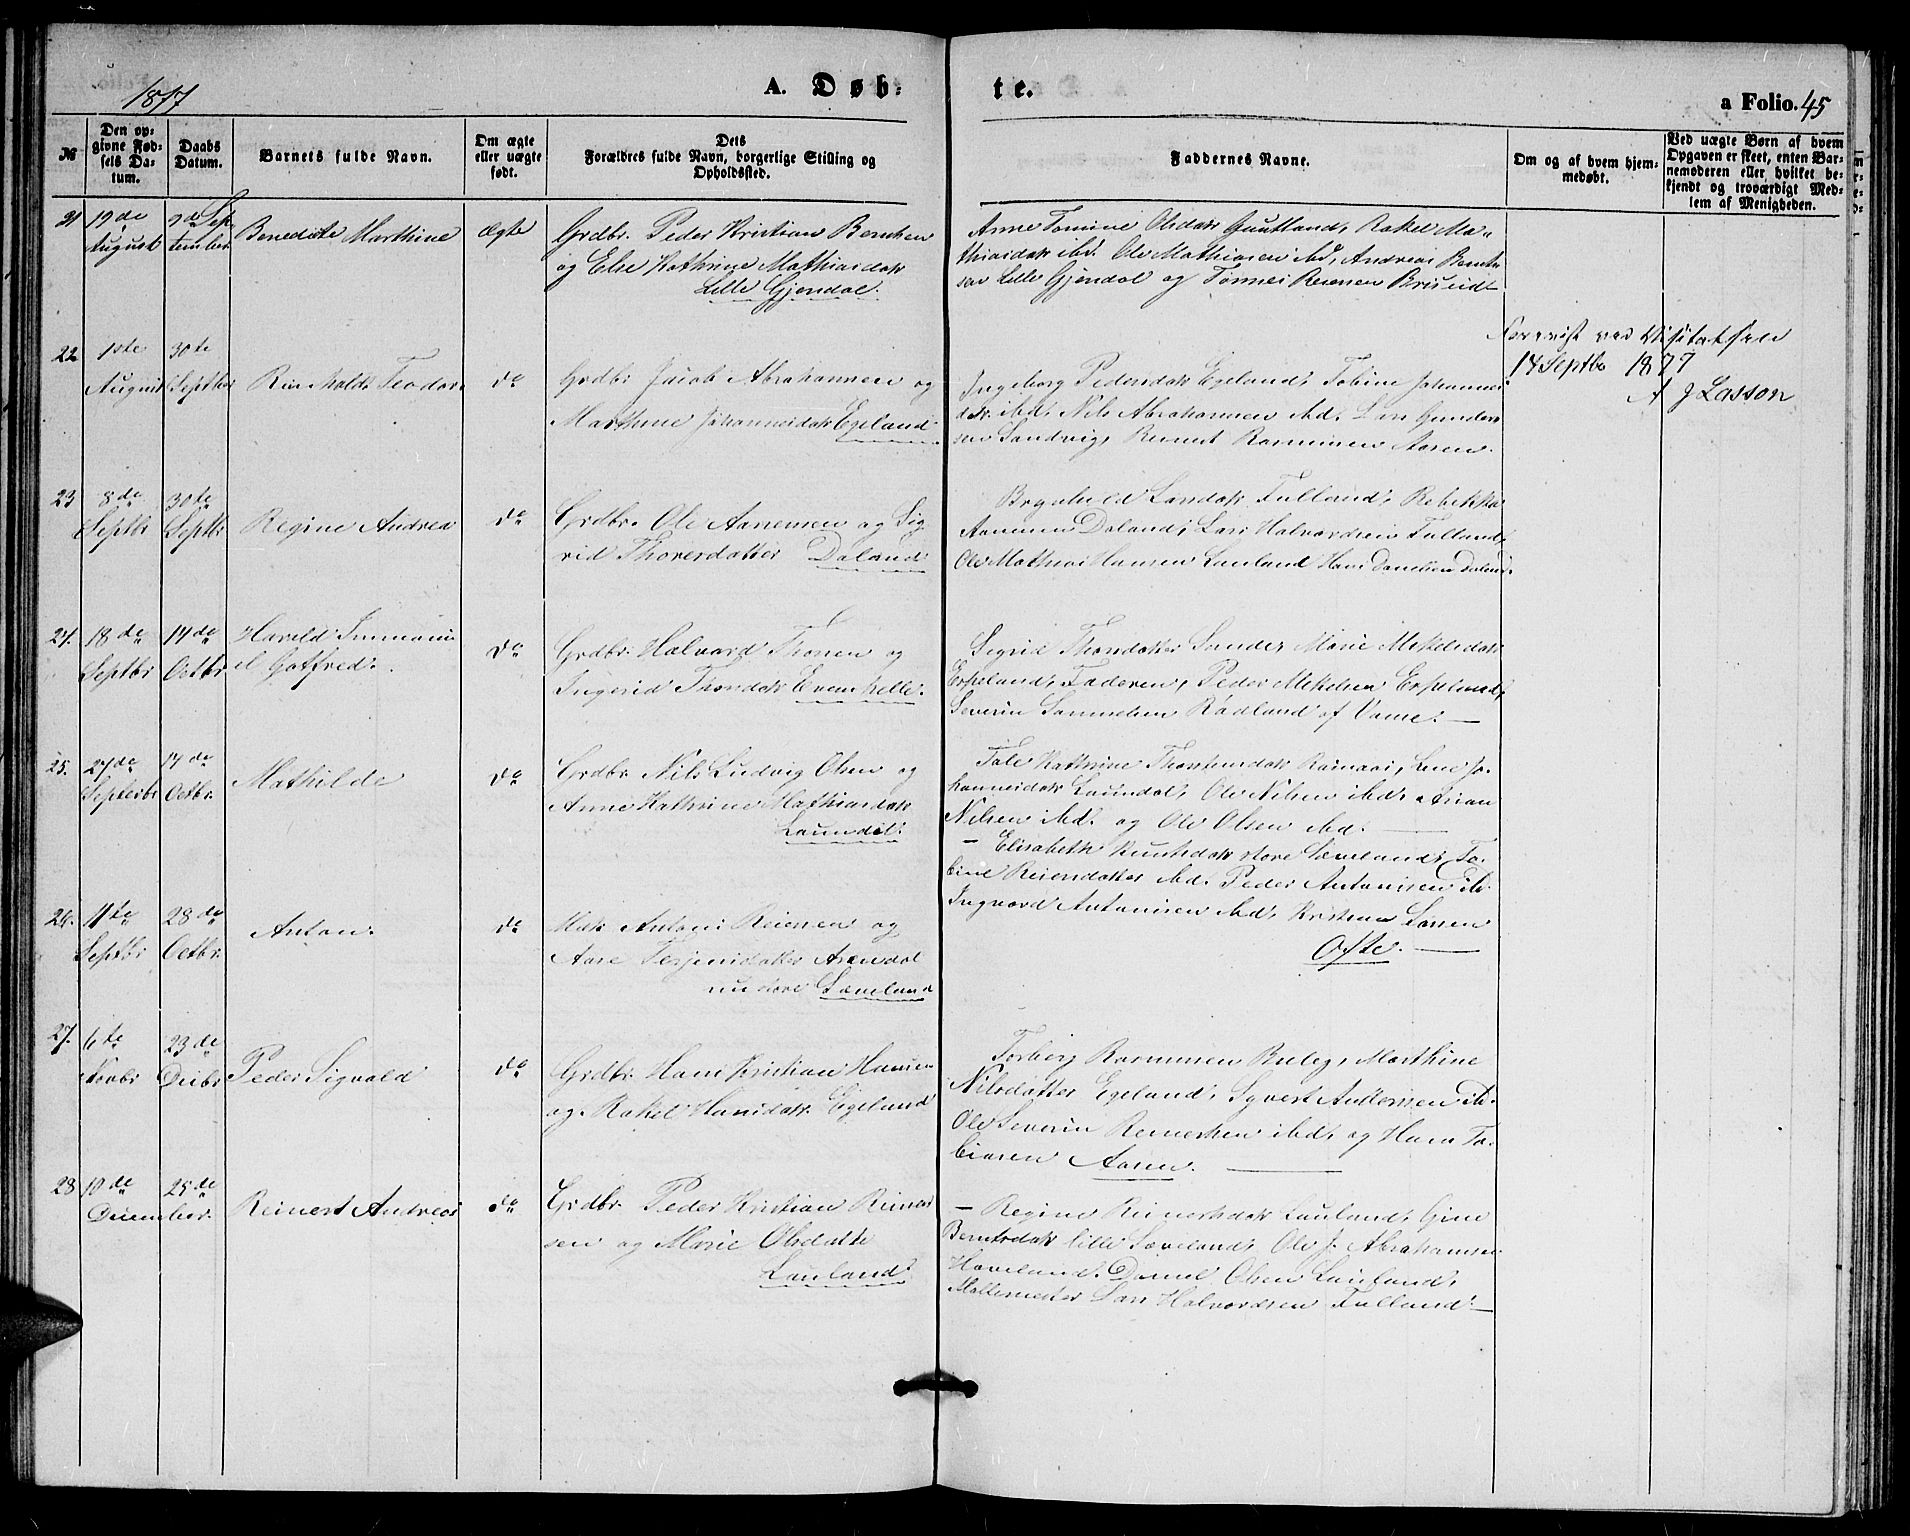 1877
A. Døb:
te.
a Folio. 45
№
Den op-
givne Fød-
sels Da-
tum.
Daabs
Datum.
Barnets fulde Navn.
Om ægte
eller uægte
født.
Dets
Forældres fulde Navn, borgerlige Stilling og
Opholdssted.
Faddernes Navne.
Om og af hvem hjem-
medøbt.
Ved uægte Børn af hvem
Opgaven er skeet, enten Bar-
nemoderen eller hvilket be-
kjendt og troværdigt Med-
lem af Menigheden.
21
19de
August
9de Sep
tember
Benedicte Marthine
Ægte
Grdbr. Peder Kristian Berntsen
og Else Kathrine Mathiasdatr
Lille Gjendal.
Anne Tomine Olsdatr Rakel Ma-
thiasdatr ibd. Ole Mathiasen ibd, Andreas Bernt-
sen Lille Gjendal og Tønnes
22
1ste
August
30te
Septbr
Reinholdt Teodor
do
Grdbr Jacob Abrahamsen og
Marthine Johannesdatr Egeland.
Ingeborg Pedersdatr Egeland, Tobine Johannes
datr. ibd. Nils Abrahamsen ibd. Lars Gunder
sen Sandvig, Rasmusen Aasen.
Forevist ved Visitatsen
14 Septbr 1877
J Lasson
23
8de
Septbr
30te
Septbr
Regine Andrea
do
Grdbr. Ole Aanensen og Sig
rid Thoresdatter Daland
Brynhild Larsdatr Fuland, Rebekka
Aanensen Daland, Lars Halvordsen Fuland,
Ole Mathias Hansen Lauland Hans Danielsen Daland.
24.
18de
Septbr
14de
Octbr
Harald Immanu
el Gotfred.
do
Grdbr. Halvord Thorsen og
Ingerid Thorsdatr
Sigrid Thorsdatter Sunde, Marie Mikelsdatr
Erpeland, Faderen, Peder Mikelsen Erpeland,
Severin Samuelsen Rødland af Vanse.
25.
27de
Septbr
14de
Octbr.
Mathilde
do
Grdbr. Nils Ludvig Olsen og
Anne Kathrine Mathiasdatr
Laundal.
Tale Kathrine Thorstensdatr Lene Jo-
hannesdatr Laundal, Ole Nilsen ibd,
Nilsen ibd. og Ole Olsen ibd.
26.
11te
Septbr
28de
Octbr.
Anton.
do
Antoni Reiersen og
Aase Terjesdatter Arendal
nu store Sæveland
Elisabeth Knutsdatr store Sæveland, To-
bine Reiersdatter ibd. Peder Antonisen ib.
Ingvard Antonisen ibd, Kristian Larsen
Ofte.
27.
6te
Novbr
23de
Decbr
Peder Sigvald
do
Grdbr. Hans Kristian Hansen
og Rakel Hansdatr. Egeland
Torborg Rasmusen Marthine
Nilsdatter Egeland, Syvert Andersen ib.
Ole Severin Reinertsen ibd, og Hans To-
biasen Aasen.
28
10de
December.
25de
Reinert Andreas
do
Grdbr. Peder Kristian Reinert
sen og Marie Olsdatter
Lauland
Regine Reinertsdatr Lauland, Gine
Berntsdatr lille Sæveland, Ole J. Abrahamsen
Haveland, Daniel Olsen Lauland,
Lars Halvordsen Fuland.